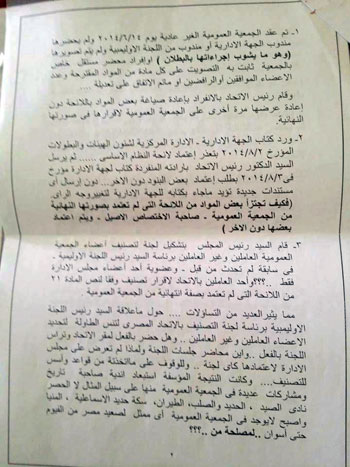 ١- تم عقد الجمعية العمومية الغير عادية يوم ٢٠١٤/٦/١٤ ولم يحضرها
مندوب الجهة الادارية او مندوب من اللجنة الاوليمبية ولم يتم تصويرها
(وهو ما يشوب إجراءاتها بالبطلان) اوإفراد محضر مستقل خاص
بالجمعية ثابت به التصويت على كل مادة من المواد المقترحة وعدد
الاعضاء الموافقين أوالرافضين او ماتم الاتفاق على تعديلة ....
وقام رئيس الاتحاد بالانفراد بإعادة صياغة بعض المواد باللائحة دون
إعادة عرضها مرة أخرى على الجمعية العمومية لاقرارها فى صورتها
النهائية.
٢- ورد كتاب الجهة الادارية - الادارة المركزية لشئون الهيئات والبطولات
المؤرخ ٢٠١٤/٨/٢ بتعذر إعتماد لائحة النظام الاساسى ...... لم يرسل
السيد الدكتور رئيس الاتحاد بارادته المنفردة كتاب لجهة الادارة مؤرخ
فى ٢٠١٤/٨/٣ بطلب إعتماد بعض البنود دون الاخر... دون إرسال أى
مستندات جديدة تؤيد ماجاء بكتابه للجهة الادارية لتغييروجه الراى
(فكيف تجتزأ بعض المواد من اللائحة التى لم تعتمد بصورتها النهائية
من الجمعية العمومية - صاحبة الاختصاص الاصيل - ويتم أعتماد
بعضها دون الاخر )
٣- قام السيد رئيس المجلس بتشكيل لجنة لتصنيف أعضاء الجمعية
العمومية العاملين وغير العاملين برئاسة السيد رئيس اللجنة الاوليمبية -
فى سابقة لم تحدث من قبل - وعضوية أحد أعضاء مجلس الادارة
فقط ..؟؟؟وأحد العاملين بالاتحاد لأقرار تصنيف وفقا لنص المادة ٢١
من اللائحة التى لم تعتمد بصفة انتهائية من الجمعية العمومية
مما يثيرالعديد من التساؤلات .... حول ماعلاقة السيد رئيس اللجنة
الاوليمبية برئاسة لجنة التصنيف بالاتحاد المصرى لتنس الطاولة لتحديد
الاعضاء العاملين وغير العاملين .. وهل حضر بالفعل لمقر الاتحاد وتراس
اللجنة بالفعل ..وأين محاضر جلسات اللجنة ولماذا لم تعرض على مجلس
الادارة لاعتمادها كأى لجنة .. وللوقوف على ماأتخذته من قواعد وأسس
للتصنيف.... وكانت النتيجة المؤسفة استبعاد اندية صاحبة تاريخ
ومشاركات عديدة فى الجمعية العمومية منها على سبيل المثال لا الحصر
نادى الصيد ، الحديد والصلب، الطيران، سكة حديد الاسماعلية ، المنيا
واصبح لايوجد فى الجمعية العمومية أى ممثل لصعيد مصر من الفيوم
حتى أسوان ..لمصلحة من ..؟؟؟